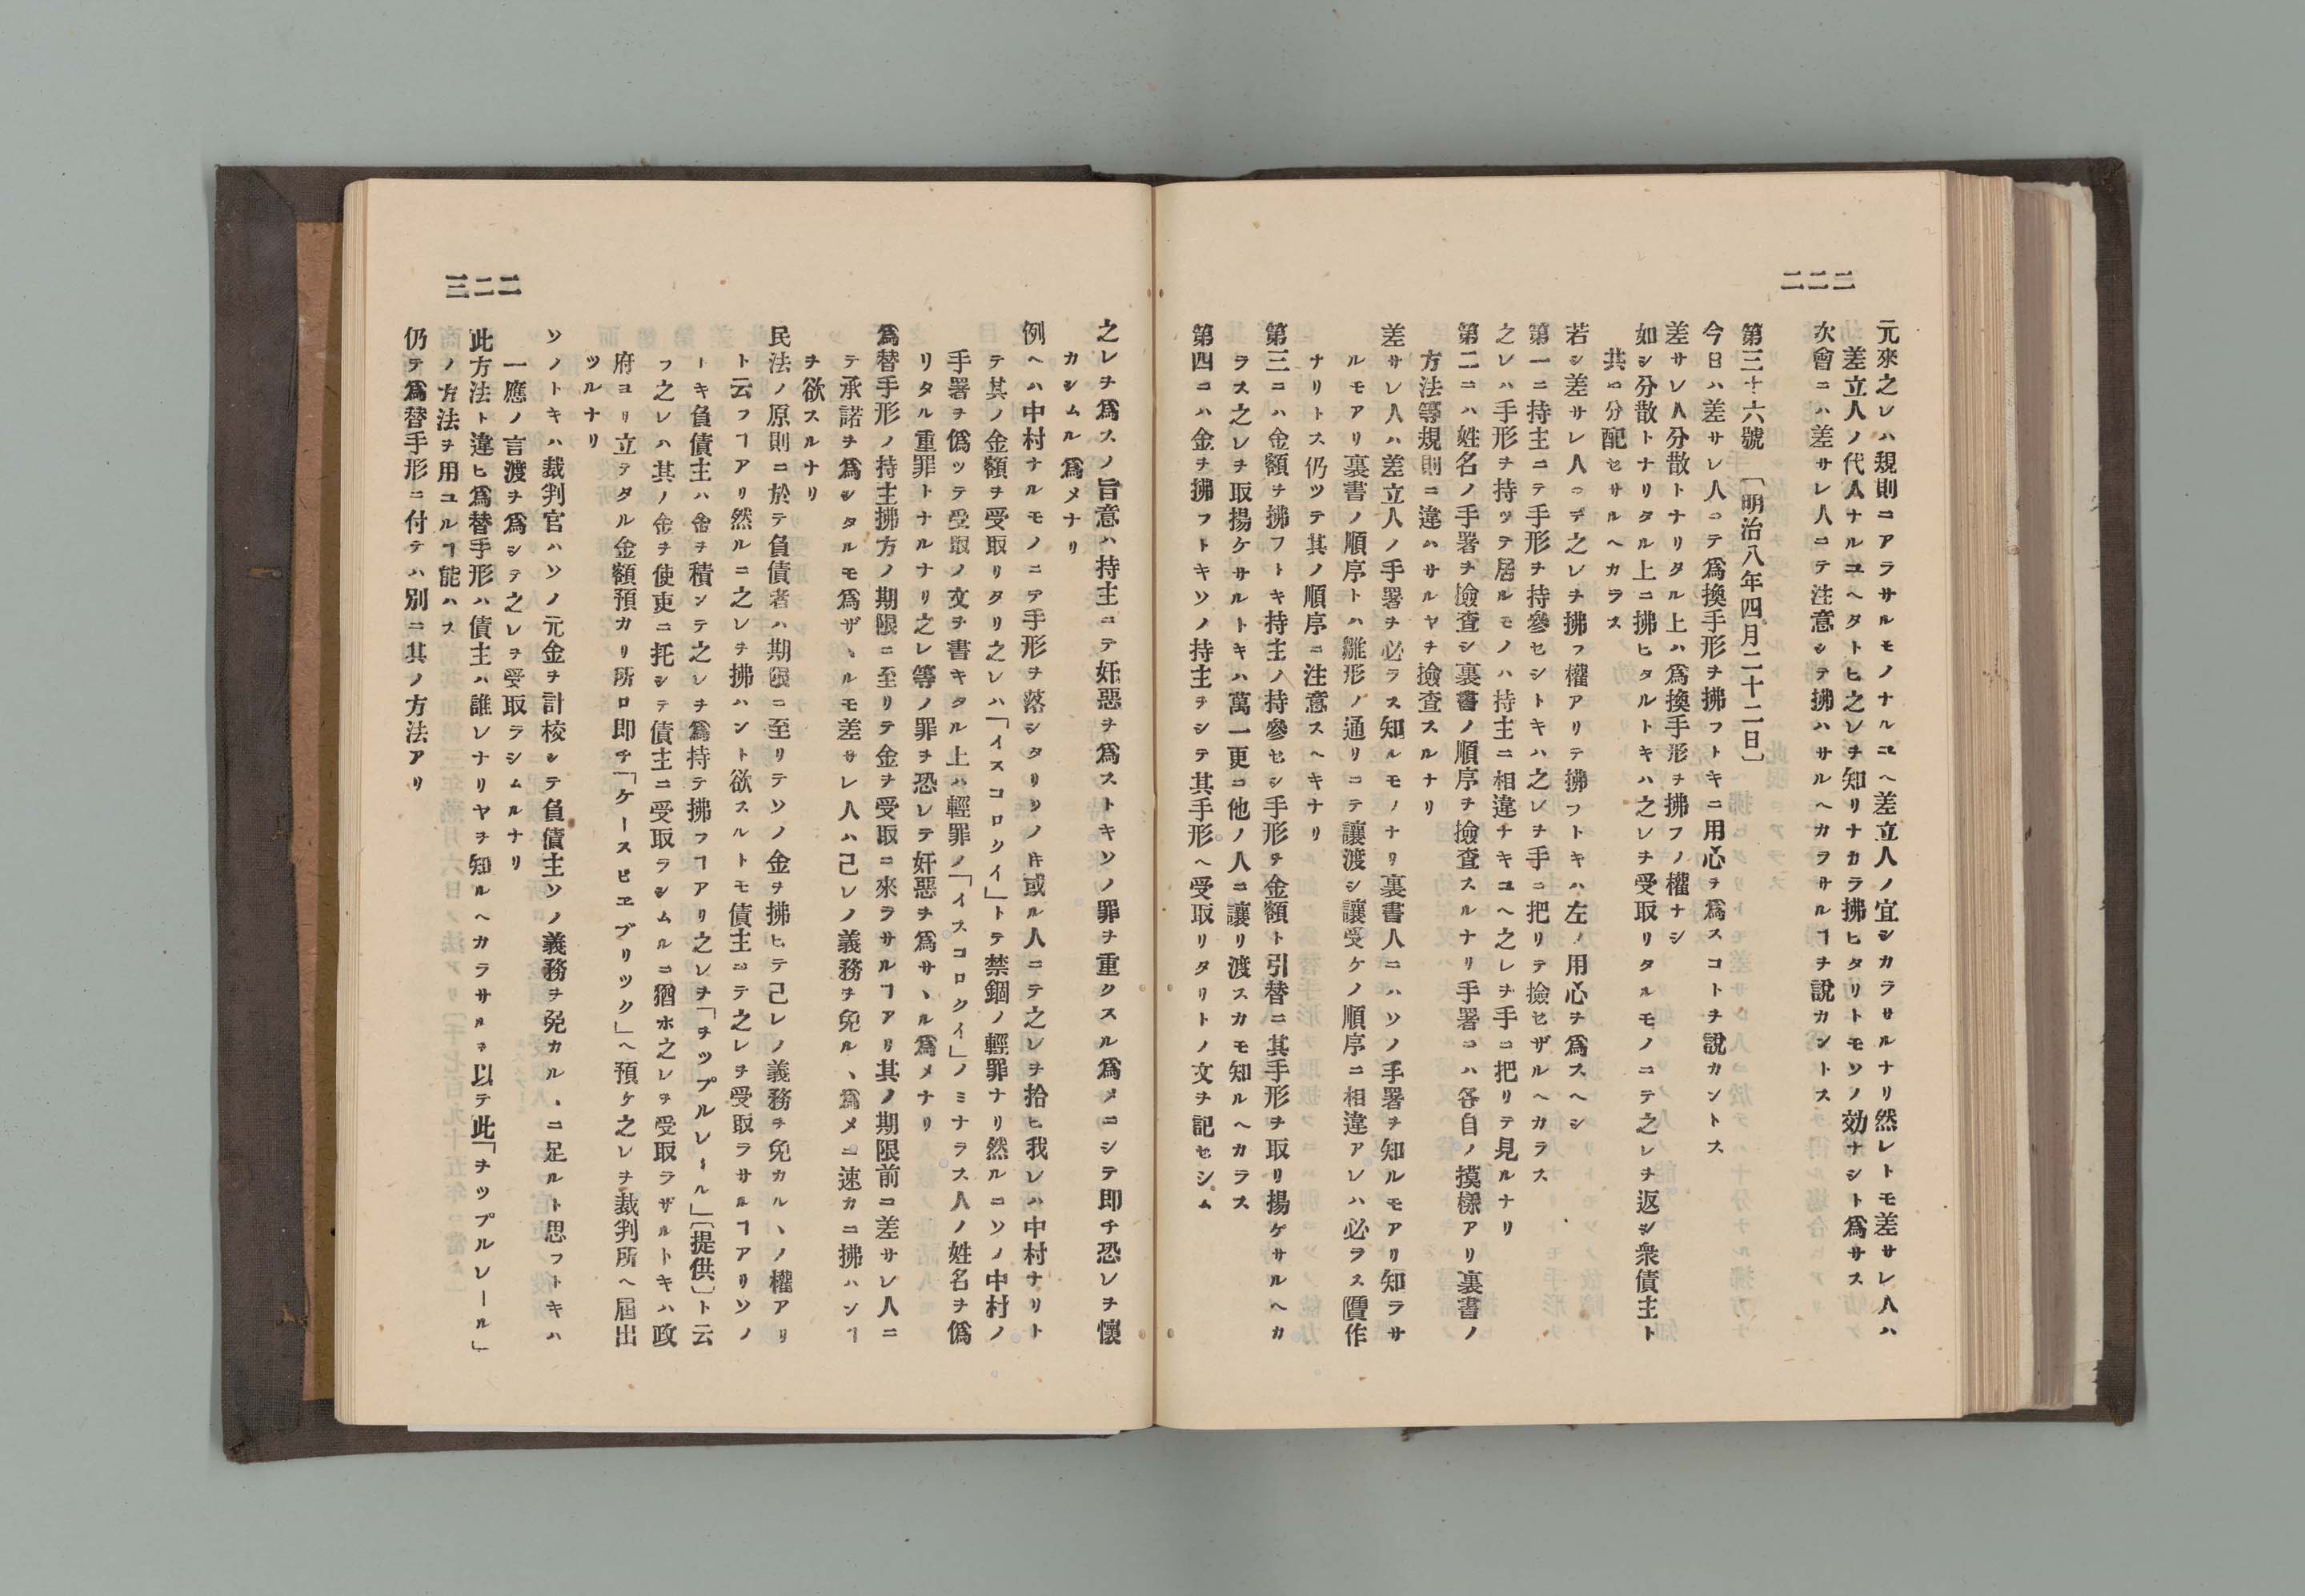 二二二
元來之レハ規則ニアラサルモノナルユヘ差立人ノ宜シカラサルナリ然レトモ差サレ人ハ
差立人ノ代人ナルユヘタトヒ之レヲ知リナカラ拂ヒタリトモソノ効ナシト爲サス
次會ニハ差サレ人ニテ注意シテ拂ハサルヘカラサルヿヲ說カントス
第三十六號 〔明治八年四月二十二日〕
今日ハ差サレ人ニテ爲換手形ヲ拂フトキニ用心ヲ爲スコトヲ說カントス
差サレ人分散トナリタル上ハ爲換手形ヲ拂フノ權ナシ
如シ分散トナリタル上ニ拂ヒタルトキハ之レヲ受取リタルモノニテ之レヲ返シ衆債主ト
共ニ分配セサルヘカラス
若シ差サレ人ニテ之レヲ拂フ權アリテ拂フトキハ左ノ用心ヲ爲スヘシ
第一ニ持主ニテ手形ヲ持參セシトキハ之レヲ手ニ把リテ撿セザルヘカラス
之レハ手形ヲ持ツテ居ルモノハ持主ニ相違ナキユヘ之レヲ手ニ把リテ見ルナリ
第二ニハ姓名ノ手署ヲ撿查シ裏書ノ順序ヲ撿查スルナリ手署ニハ各自ノ摸樣アリ裏書ノ
方法等規則ニ違ハサルヤヲ撿查スルナリ
差サレ人ハ差立人ノ手署ヲ必ラス知ルモノナリ裏書人ニハソノ手署ヲ知ルモアリ知ラサ
ルモアリ裏書ノ順序トハ雛形ノ通リニテ讓渡シ讓受ケノ順序ニ相違アレハ必ラス贋作
ナリトス仍ツテ其ノ順序ニ注意スヘキナリ
第三ニハ金額ヲ拂フトキ持主ノ持參セシ手形ヲ金額ト引替ニ其手形ヲ取リ揚ケサルヘカ
ラス之レヲ取揚ケサルトキハ萬一更ニ他ノ人ニ讓リ渡スカモ知ルヘカラス
第四ニハ金ヲ拂フトキソノ持主ヲシテ其手形ヘ受取リタリトノ文ヲ記セシム
二二三
之レヲ爲スノ旨意ハ持主ニテ奸惡ヲ爲ストキソノ罪ヲ重クスル爲メニシテ即チ恐レヲ懷
カシムル爲メナリ
例ヘハ中村ナルモノニテ手形ヲ落シタリソノ時或ル人ニテ之レヲ拾ヒ我レハ中村ナリト
テ其ノ金額ヲ受取リタリ之レハ「イスコロクイ」トテ禁錮ノ輕罪ナリ然ルニソノ中村ノ
手署ヲ僞ツテ受取ノ文ヲ書キタル上ハ輕罪ノ「イスコロクイ」ノミナラス人ノ姓名ヲ僞
リタル重罪トナルナリ之レ等ノ罪ヲ恐レテ奸惡ヲ爲サヽル爲メナリ
爲替手形ノ持主拂方ノ期限ニ至リテ金ヲ受取ニ來ラサルヿアリ其ノ期限前ニ差サレ人ニ
テ承諾ヲ爲シタルモ爲ザヽルモ差サレ人ハ己レノ義務ヲ免ルヽ爲メニ速カニ拂ハンヿ
ヲ欲スルナリ
民法ノ原則ニ於テ負債者ハ期限ニ至リテソノ金ヲ拂ヒテ己レノ義務ヲ免カルヽノ權アリ
ト云フヿアリ然ルニ之レヲ拂ハント欲スルトモ債主ニテ之レヲ受取ラサルヿアリソノ
トキ負債主ハ金ヲ積ンテ之レヲ爲持テ拂フヿアリ之レヲ「ヲツプルレール」〔提供〕ト云
フ之レハ其ノ金ヲ使吏ニ托シテ債主ニ受取ラシムルニ猶ホ之レヲ受取ラザルトキハ政
府ヨリ立テタル金額預カリ所ロ即チ「ケースピエブリツク」ヘ預ケ之レヲ裁判所ヘ屆出
ツルナリ
ソノトキハ裁判官ハソノ元金ヲ計校シテ負債主ソノ義務ヲ免カルヽニ足ルト思フトキハ
一應ノ言渡ヲ爲シテ之レヲ受取ラシムルナリ
此方法ト違ヒ爲替手形ハ債主ハ誰レナリヤヲ知ルヘカラサルヲ以テ此「ヲツプルレール」
ノ方法ヲ用ユルヿ能ハス
仍テ爲替手形ニ付テハ別ニ其ノ方法アリ